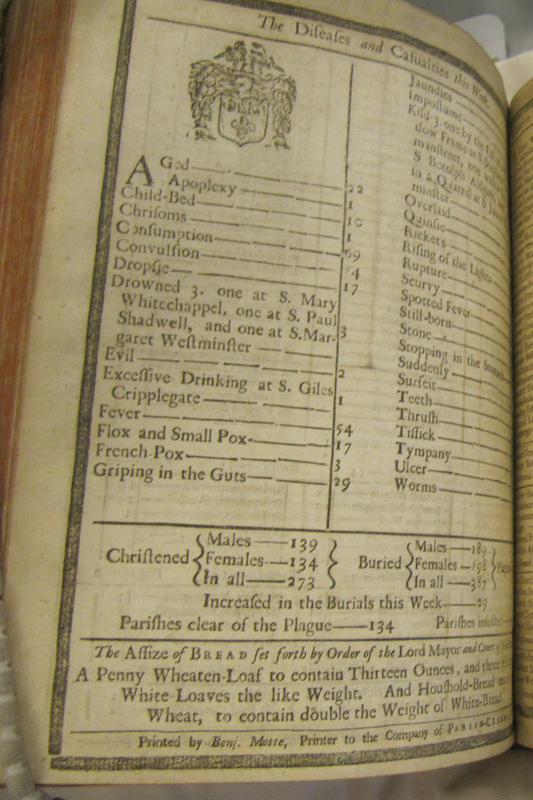 The Diſeaſes and Caſualties this Week.
AGed 22
Apoplexy 1
Child-Bed 10
Chriſoms 1
Conſumption 69
Convulſion
Dropſie 17
Drowned 3. one at S. Mary
Whitechappel, one at S. Paul
Shadwell, and one at S. Mar- 3
garet Weſtminſter
Evil 2
Exceſſive Drinking at S. Giles
Cripplegate 1
Fever 54
Flox and Small Pox 17
French-Pox 3
Griping in the Guts 29
Jaundies
Impoſtume
Kild 3. one by the Fall of
dow Frame at S.
one
S Botolph
in a Quarrel at S
minſter
Overlaid
Quinſie
Rickets
Riſing of the Lights
Rupture
Scurvy
Spotted Fever
Still-born
Stone
Stopping in the Stomach
Suddenly
Surfeit
Teeth
Thruſh
Tiſſick
Tympany
Ulcer
Worms
Chriſtened
Males 139
Females 134
In all 273
Buried
Males 189
Females 198
In all 387
Increaſed in the Burials this Week 29
Pariſhes clear of the Plague 134 Pariſhes
The Aſſize of BREAD ſet forth by Order of the Lord Mayor and Court of
A Penny Wheaten-Loaf to contain Thirteen Ounces, and three
White-Loaves the like Weight. And Houſhold-Bread
Wheat, to contain double the Weight of White-Bread.
Printed by Benj. Motte, Printer to the Company of PARISH-CLERKS